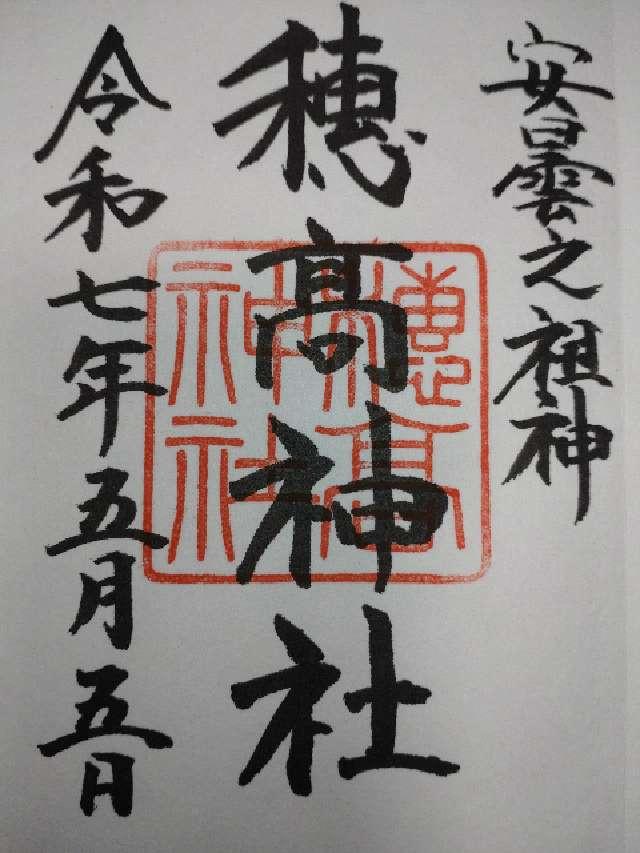 安曇之祖神
穂高神社
令和七年五月五日